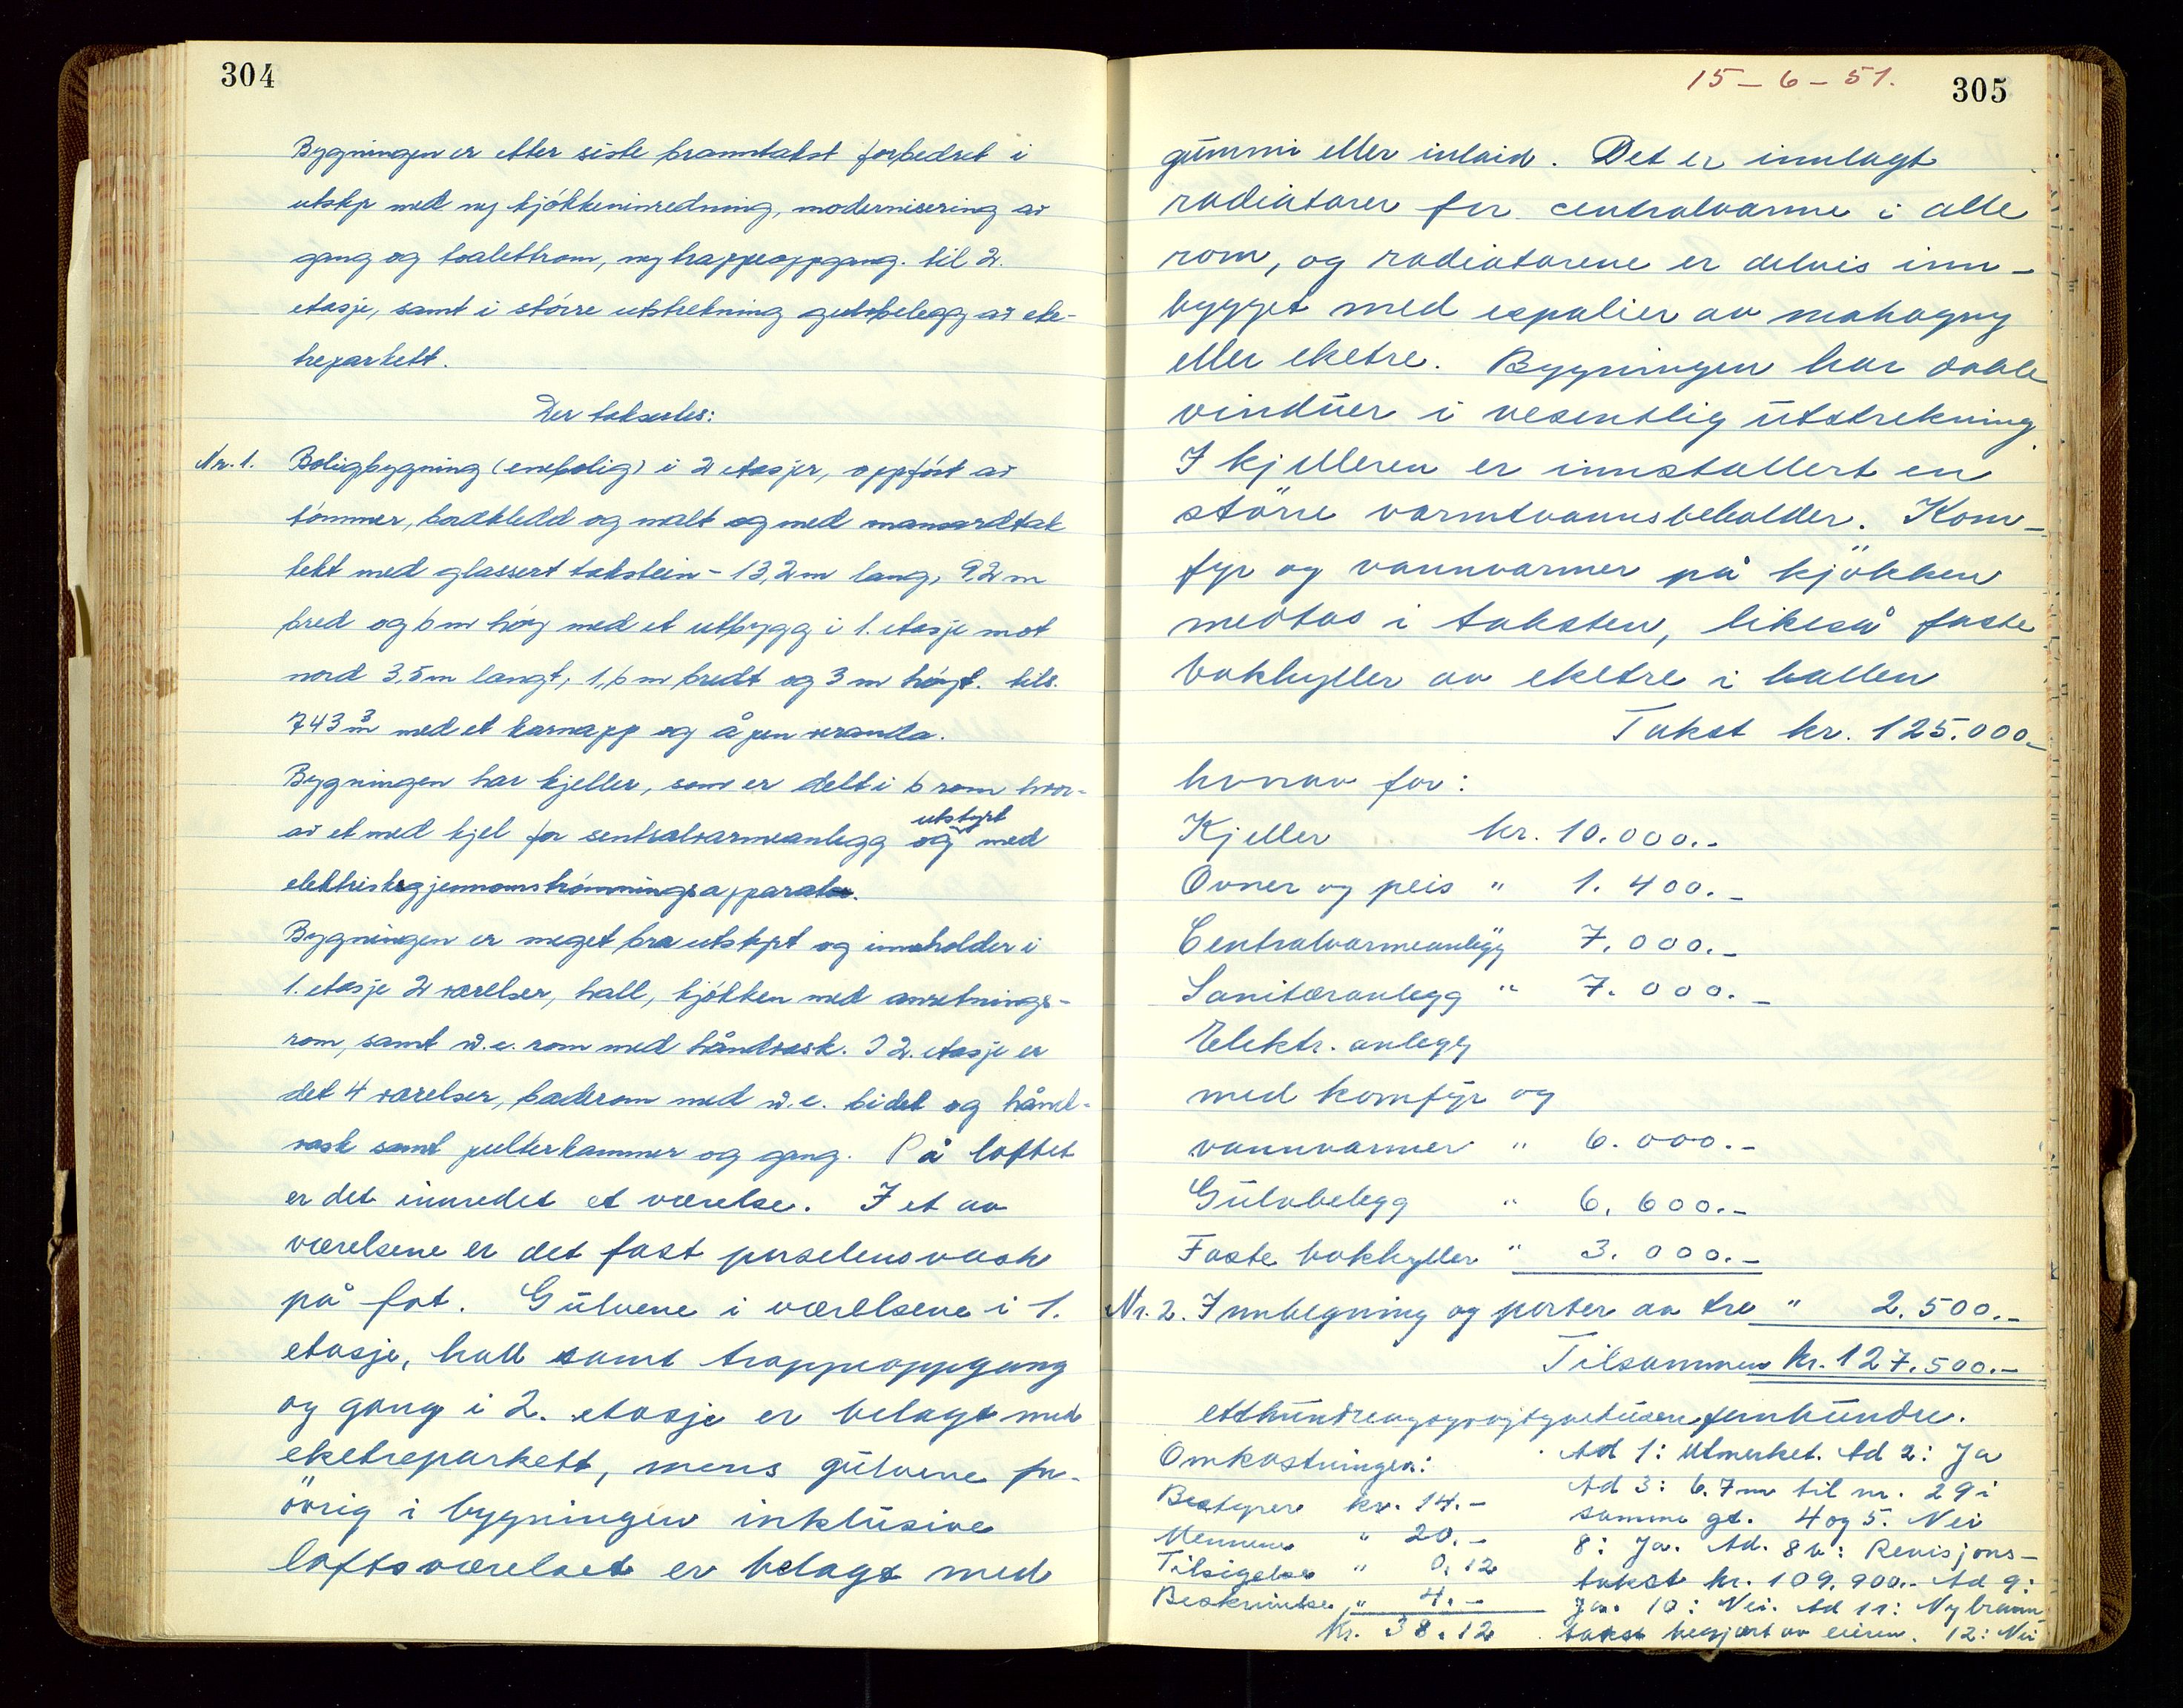 304
Bygningen er etter siste branntakst forbedret i
utstyr med ny kjókkeninnredning, modernisering av
gang og toalettrom, ny trappeoppgang. til 2.
etasje, samt i större utstrekning gulvbelegg av eke-
treparkett.
Der takseres:
Nr. 1. Boligbygning (enebolig) i 2 etasjer, oppfört av
tömmer, bordkledd og malt og med mansardtak
tekt med glassert takstein - 13,2 m lang, 9,2 m
bred og 6 m höy med et utbygg i 1. etasje mot
nord 3,5 m langt, 1,6 m bredt og 3 m höyt. tils.
743 m3 med et karnapp og åpen veranda.
Bygningen har kjeller, som er delt i 6 rom hvor-
av et med kjel for sentralvarmeanlegg og utstyrt med
elektrisk gjennomströmningsapparat.
Bygningen er meget bra utstyrt og inneholder i
1. etasje 2 værelser, hall, kjökken med anretnings-
rom, samt w.c. rom med håndvask. I 2. etasje er
det 4 værelser, baderom med w.c. bidet og hånd-
vask samt pulterkammer og gang. På loftet
er det innredet et værelse. I et av
værelsene er det fast porselensvask
på fot. Gulvene i værelsene i 1.
etasje, hall samt trappeoppgang
og gang i 2. etasje er belagt med
eketreparkett, mens gulvene for-
övrig i bygningen inklusive
loftsværelset er belagt med
15-6-51.
305
gummi eller inlaid. Det er innlagt
radiatorer for centralvarme i alle
rom, og radiatorene er delvis inn-
bygget med espalier av mahogny
eller eketre. Bygningen har doble
vinduer i vesentlig utstrekning.
I kjelleren er innstallert en
större varmtvannsbeholder. Kom-
fyr og vannvarmer på kjökken
medtas i taksten, likeså faste
bokhyller av eketre i hallen
Takst kr. 125.000.-
hvorav for:
Kjeller kr. 10.000.-
Ovner og peis " 1.400.-
Centralvarmeanlegg " 7.000.-
Sanitæranlegg " 7.000.-
Elektr. anlegg
med komfyr og
vannvarmer " 6.000.-
Gulvbelegg " 6.600.-
Faste bokhyller " 3.000.-
Nr. 2. Innhegning og porter av tre " 2.500.-
Tilsammen kr. 127.500.-
etthundreogtjuesyvtusenfemhundre.
Omkostninger:
Bestyrer kr. 14.-
Mennene " 20.-
Tilsigelse " 0.12
Beskrivelse " 4.-
Kr. 38.12
Ad 1: Utmerket. Ad 2: Ja
Ad 3: 6.7 m til nr. 29 i
samme gt. 4 og 5. Nei
8: Ja. Ad. 8b: Revisjons-
takst kr. 109.900.- Ad 9:
Ja. 10: Nei. Ad 11: Ny brann-
takst begjært av eieren. 12: Nei